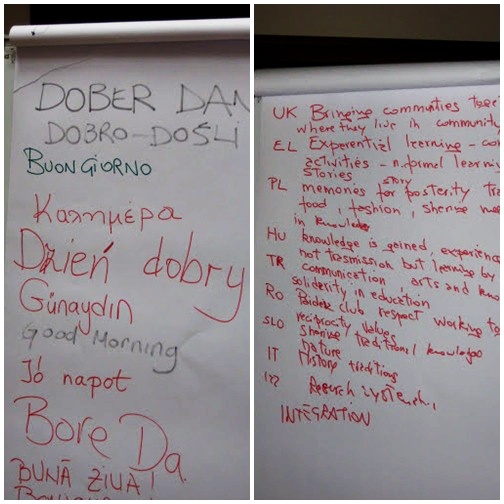 DOBER DAN
DOBRO-DOŠLI
BUONGIORNO
Καλημέρα
Dzień dobry
Günaydın
Good Morning
Jó napot
Bore Da
BUNĂ ZIUA!
UK Bringing communities
where they live in community
EL Experential learning -
activities - nformal learning
stories
PL memories story for posterity
food, fashion, sharing
in knowledge
HU knowledge is gained, experience
not trasmission but learning by
TR communication, arts and
solidarity in education
RO club respect working
reciprocity values
SLO sharing traditional knowledge
nature
IT History traditions
INTEGRATION